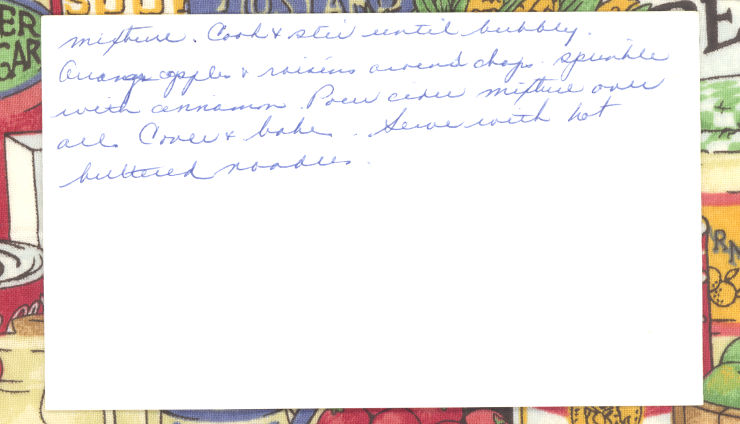 mixture. Cook & stir until bubbly.
Arrange apples & raisins around chops. sprinkle
with cinnamon. Pour cider mixture over
all. Cover & bake. Serve with hot
buttered noodles.